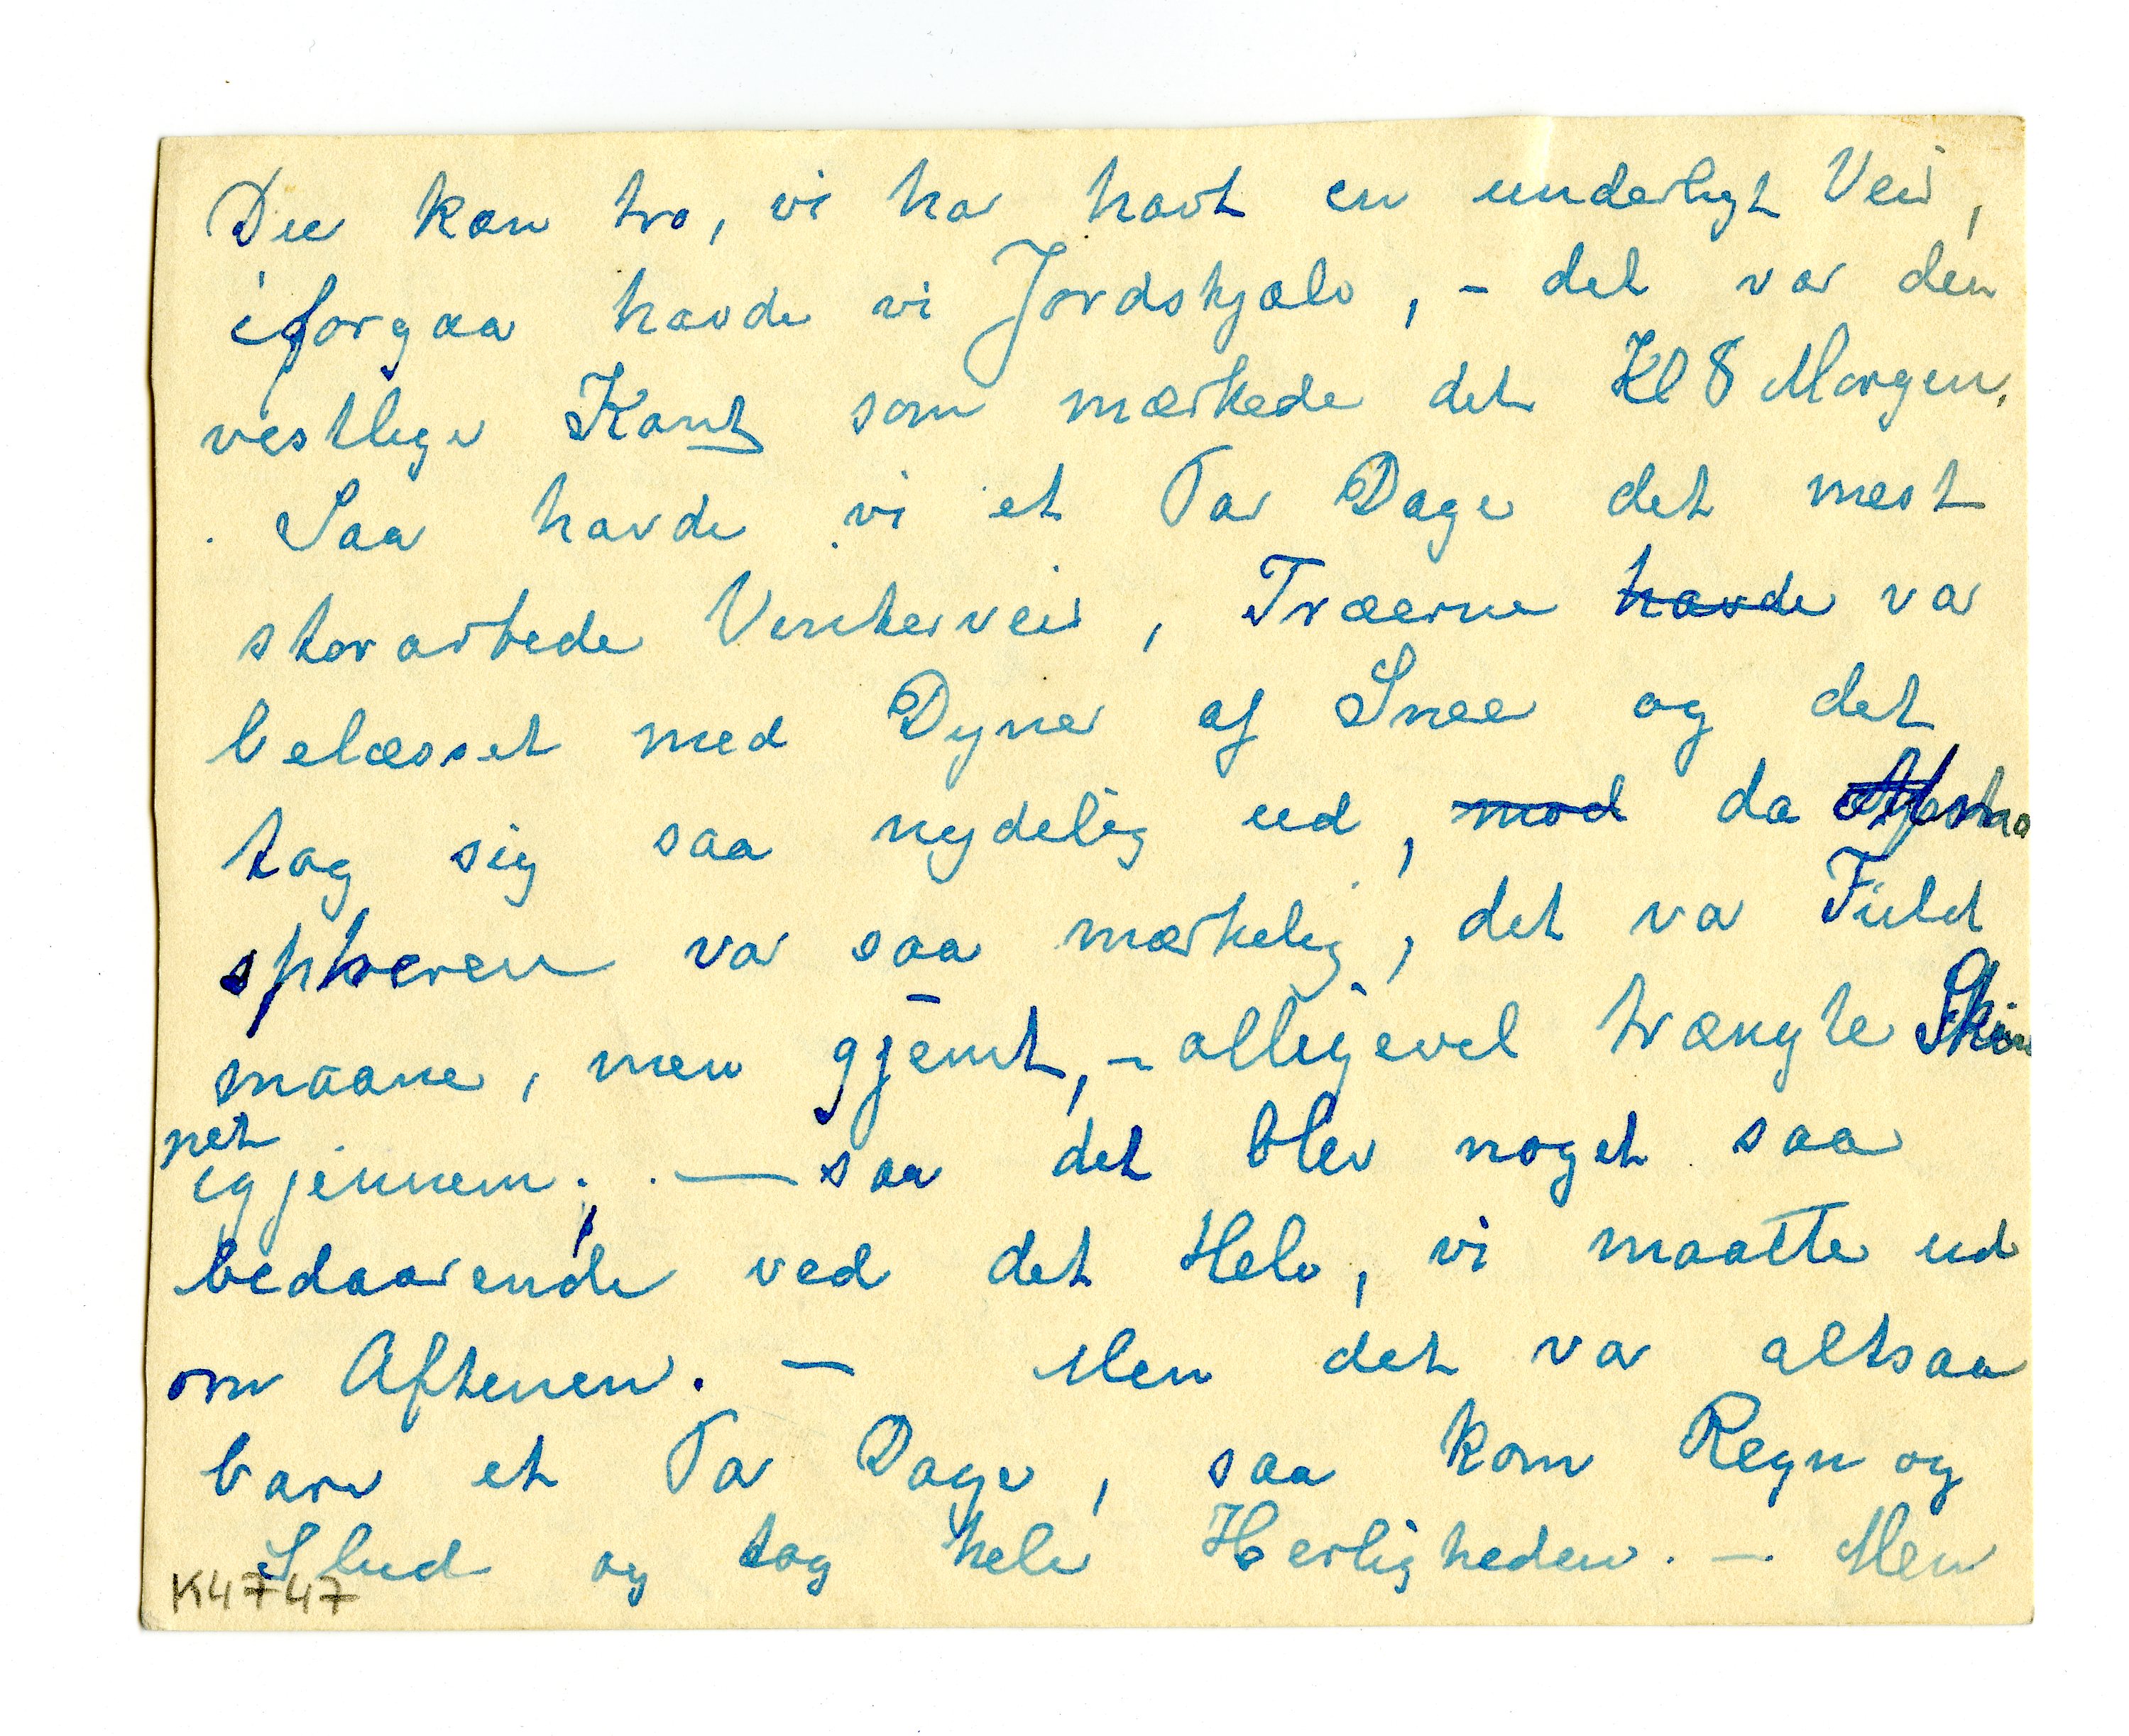 Du kan tro, vi har havt en underligt Veir,
iforgaar havde vi Jordskjælv, - det var den
vestlige Kant som mærkede det Kl 8 Morgen.
Saa havde vi et Par Dage det mest
storartede Vinterveir, Træerne havde var
belæsset med Dyner af Snee og det
tog sig saa nydelig ud, mod da Atmo
sphæren var saa mærkelig, det var Fuld
maane, men gjemt, - alligevel trængte Skin
net
igjennem. — saa det blev noget saa
bedaarende ved det Hele, vi maatte ud
om Aftenen. — Men det var altsaa
bare et Par Dage, saa kom Regn og
Slud og tog hele Herligheden. — Men
K4747